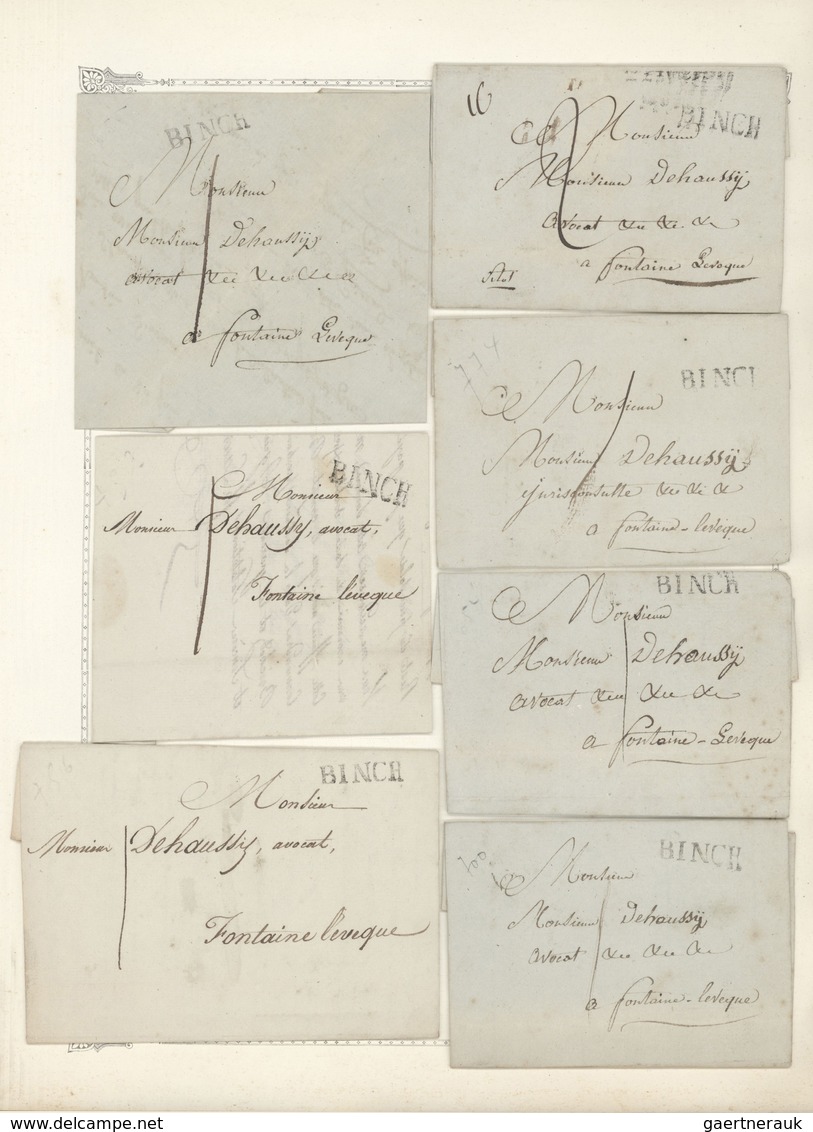 BINCH
Monsieur
Monsieur Dehaussij
avocat &c &c &c
a fontaine Leveque
16
BINCH
Monsieur
Monsieur Dehaussij
avocat &c &c &c
a fontaine Leveque
774
BINCH
Monsieur
Monsieur Dehaussij
jurisconsulte &c &c &
a fontaine-leveque
BINCH
Monsieur
Monsieur Dehaussy, avocat,
Fontaine l'eveque
BINCH
Monsieur
Monsieur Dehaussij
avocat &c &c &c
a fontaine-Leveque
BINCH
Monsieur
Monsieur Dehaussy, avocat,
Fontaine l'eveque
700
BINCH
Monsieur
Monsieur Dehaussij
avocat &c &c &c
a fontaine-leveque
gaertnerauk